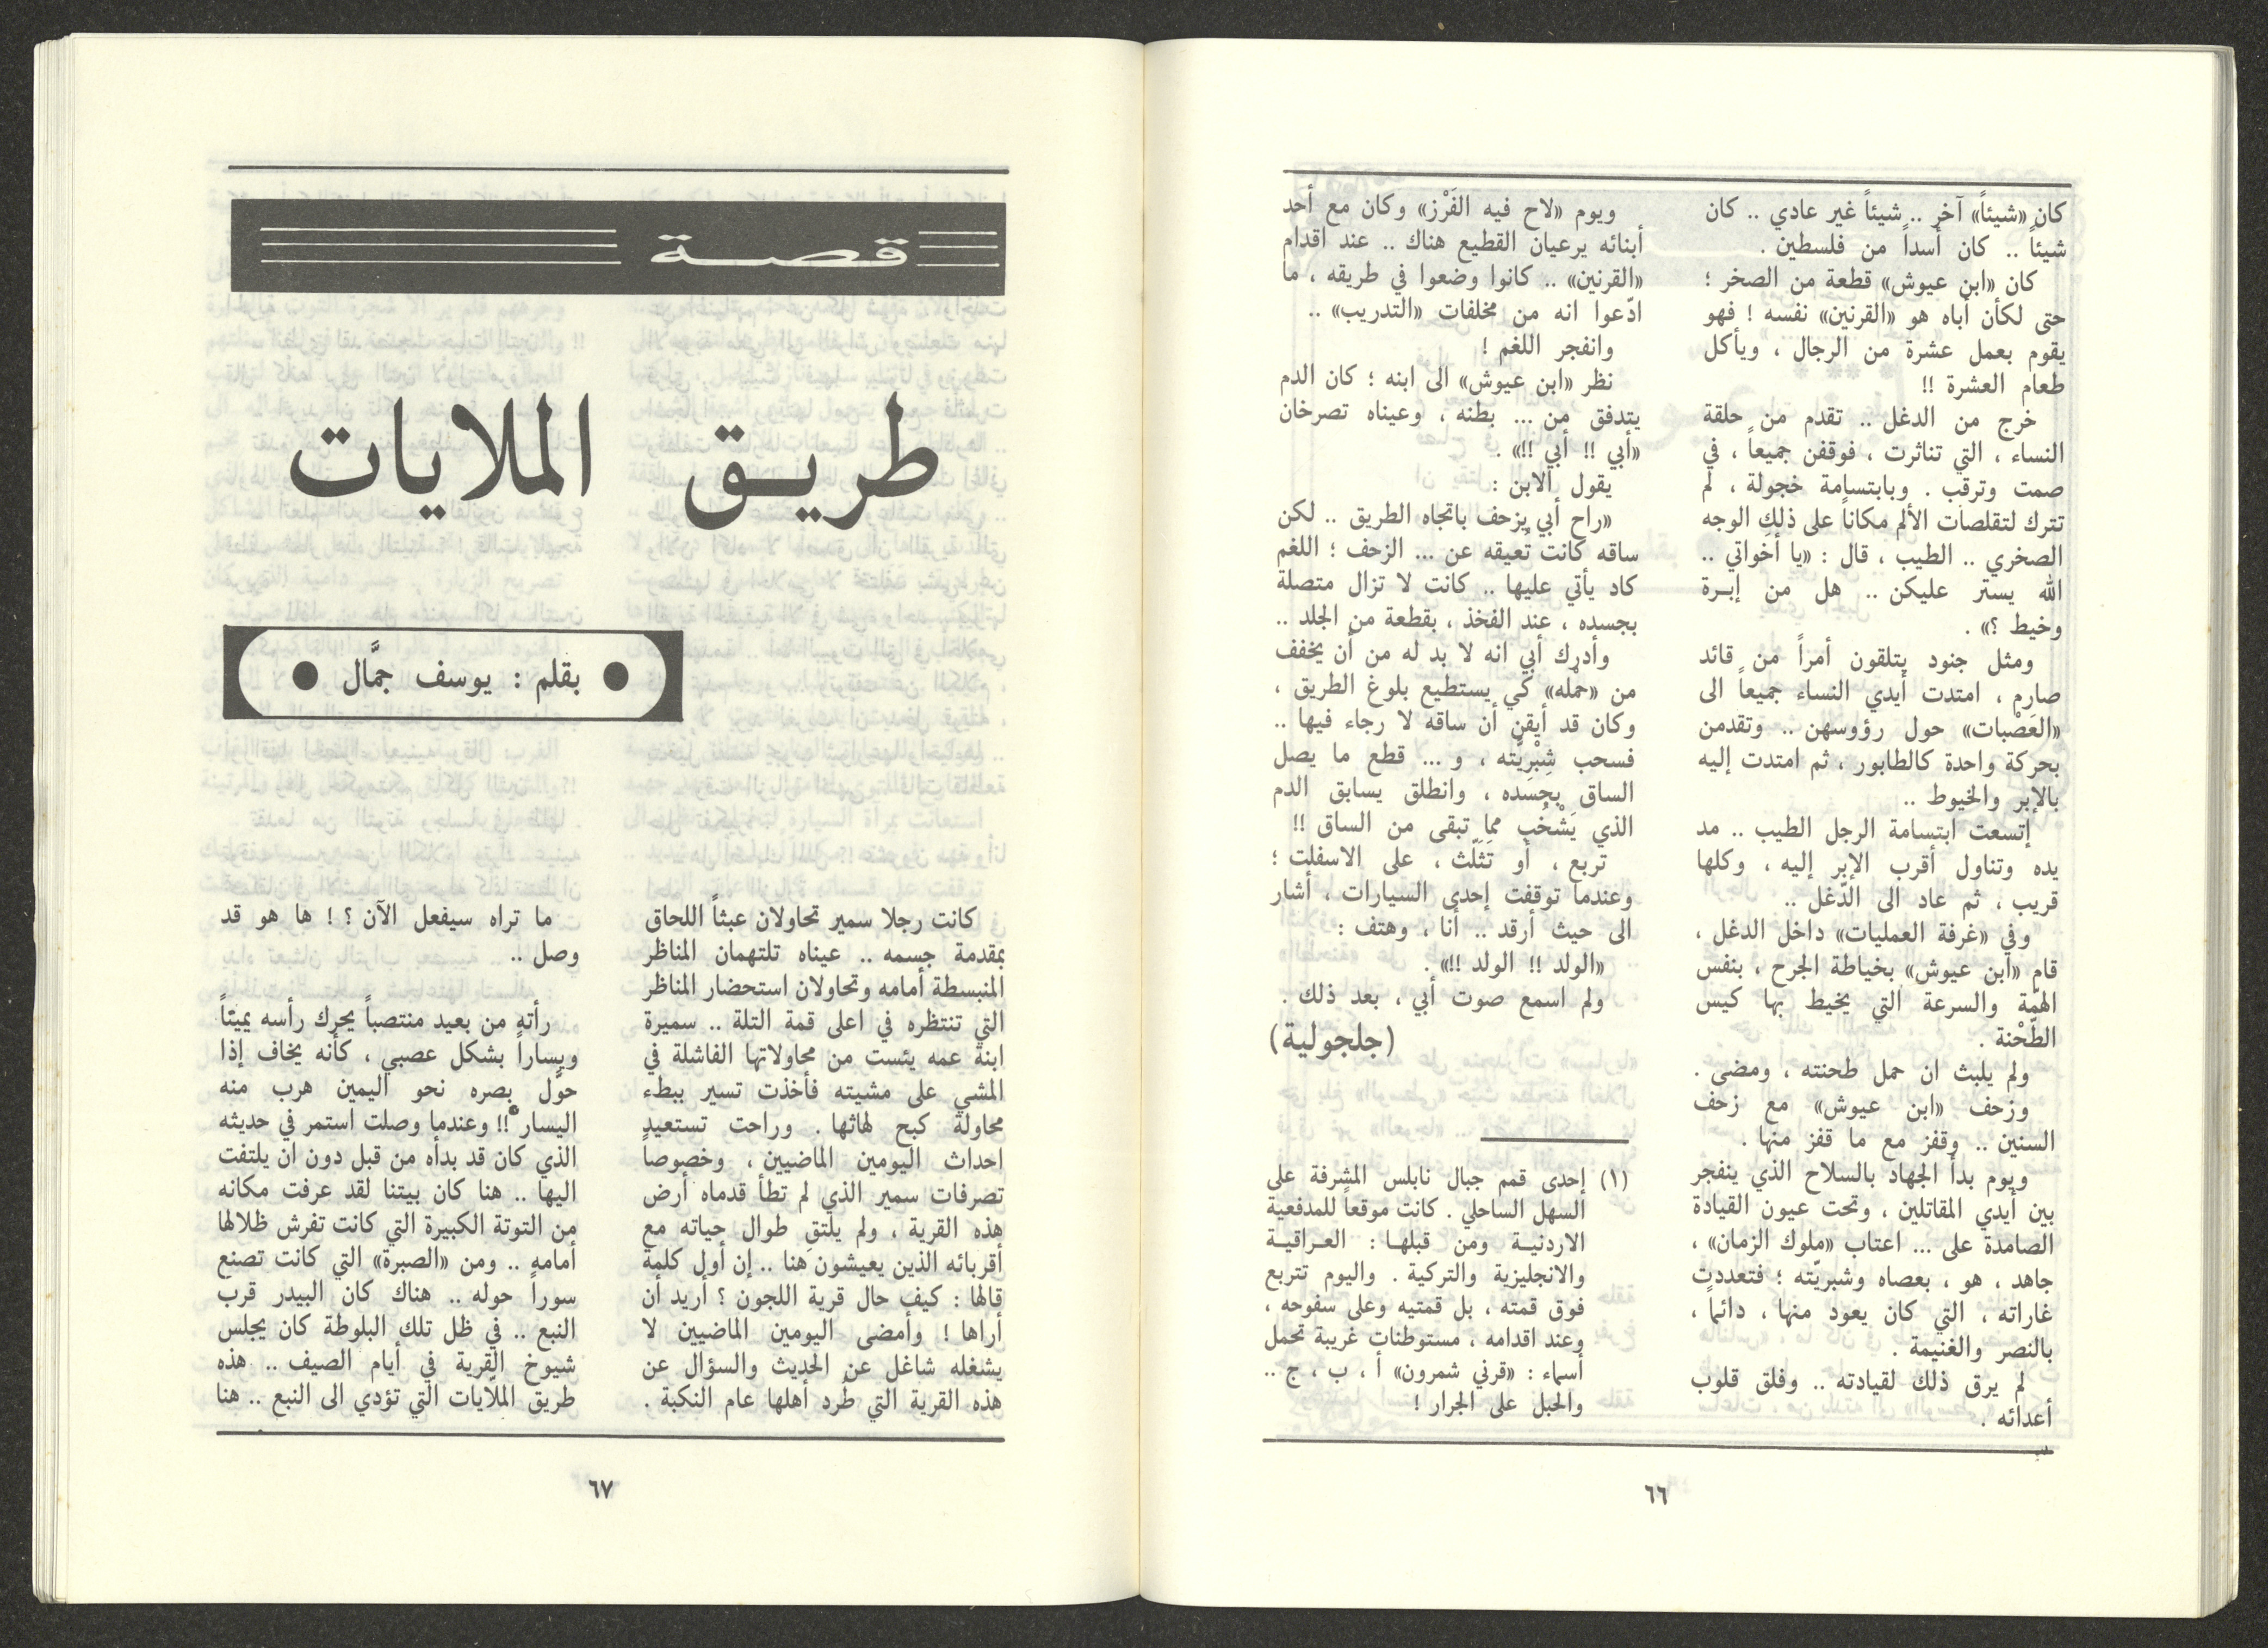 كان «شيئاً» آخر .. شيئاً غير عادي .. كان
شيئاً .. كان أسداً من فلسطين .
كان «ابن عيوش» قطعة من الصخر ؛
حتى لكأن أباه هو «القرنين» نفسه ! فهو
يقوم بعمل عشرة من الرجال ، ويأكل
طعام العشرة !!
خرج من الدغل .. تقدم من حلقة
النساء ، التي تناثرت ، فوقفن جميعاً ، في
صمت وترقب . وبابتسامة خجولة ، لم
تترك لتقلصات الألم مكاناً على ذلك الوجه
الصخري .. الطيب ، قال : «يا أخواتي ..
الله يستر عليكن .. هل من إبـرة
وخيط ؟» .
ومثل جنود يتلقون أمراً من قائد
صارم ، امتدت أيدي النساء جميعاً الى
«العَصْبات» حول رؤوسهن .. وتقدمن
بحركة واحدة كالطابور ، ثم امتدت إليه
بالإبر والخيوط ..
إتسعت ابتسامة الرجل الطيب .. مد
يده وتناول أقرب الإبر إليه ، وكلها
قريب ، ثم عاد الى الدّغل ..
وفي «غرفة العمليات» داخل الدغل ،
قام «ابن عيوش» بخياطة الجرح ، بنفس
الهمّة والسرعة التي يخيط بها كيس
الطّحْنة .
ولم يلبث ان حمل طحنته ، ومضى .
وزحف «ابن عيوش» مع زحف
السنين .. وقفز مع ما قفز منها .
ويوم بدأ الجهاد بالسلاح الذي ينفجر
بين أيدي المقاتلين ، وتحت عيون القيادة
الصامدة على ... اعتاب «ملوك الزمان» ،
جاهد ، هو ، بعصاه وشبريّته ؛ فتعددت
غاراته ، التي كان يعود منها ، دائماً ،
بالنصر والغنيمة .
لم يرق ذلك لقيادته .. وفلق قلوب
أعدائه .
ويوم «لاح فيه الفَرْز» وكان مع أحد
أبنائه يرعيان القطيع هناك .. عند اقدام
«القرنين» .. كانوا وضعوا في طريقه ، ما
ادّعوا انه من مخلفات «التدريب» ..
وانفجر اللغم !
نظر «ابن عيوش» الى ابنه ؛ كان الدم
يتدفق من ... بطنه ، وعيناه تصرخان
«أبي !! أبي !!» .
يقول الابن :
«راح أبي يزحف باتجاه الطريق .. لكن
ساقه كانت تُعيقه عن ... الزحف ؛ اللغم
كاد يأتي عليها .. كانت لا تزال متصلة
بجسده ، عند الفخذ ، بقطعة من الجلد ..
وأدرك أبي انه لا بد له من أن يخفف
من «حمله» كي يستطيع بلوغ الطريق ،
وكان قد أيقن أن ساقه لا رجاء فيها ..
فسحب شِبْرِيَّته ، و ... قطع ما يصل
الساق بجسده ، وانطلق يسابق الدم
الذي يَشْخُب مما تبقى من الساق !!
تربع ، أو تَثَلّث ، على الاسفلت ؛
وعندما توقفت إحدى السيارات ، أشار
الى حيث أرقد .. أنا ، وهتف :
«الولد !! الولد !!» .
ولم اسمع صوت أبي ، بعد ذلك .
(جلجولية)
(١) إحدى قمم جبال نابلس المشرفة على
السهل الساحلي . كانت موقعاً للمدفعية
الاردنيـة ومن قبلهـا : العـراقيـة
والانجليزية والتركية . واليوم تتربع
فوق قمته ، بل قمتيه وعلى سفوحه ،
وعند اقدامه ، مستوطنات غريبة تحمل
أسماء : «قرني شمرون» أ ، ب ، ج ..
والحبل على الجرار !
٦٦
قصـة
طريـق الملايات
بقلم : يوسف جمَّال
كانت رجلا سمير تحاولان عبثاً اللحاق
بمقدمة جسمه .. عيناه تلتهمان المناظر
المنبسطة أمامه وتحاولان استحضار المناظر
التي تنتظره في اعلى قمة التلة .. سميرة
ابنة عمه يئست من محاولاتها الفاشلة في
المشي على مشيته فأخذت تسير ببطء
محاولة كبح لهاثها . وراحت تستعيد
احداث اليومين الماضيين ، وخصوصاً
تصرفات سمير الذي لم تطأ قدماه أرض
هذه القرية ، ولم يلتقِ طوال حياته مع
أقربائه الذين يعيشون هنا .. إن أول كلمة
قالها : كيف حال قرية اللجون ؟ أريد أن
أراها ! وأمضى اليومين الماضيين لا
يشغله شاغل عن الحديث والسؤال عن
هذه القرية التي طُرد أهلها عام النكبة .
ما تراه سيفعل الآن ؟ ! ها هو قد
وصل ..
رأته من بعيد منتصباً يحرك رأسه يميناً
ويساراً بشكل عصبي ، كأنه يخاف إذا
حوَّل بصره نحو اليمين هرب منه
اليسار !! وعندما وصلت استمر في حديثه
الذي كان قد بدأه من قبل دون ان يلتفت
اليها .. هنا كان بيتنا لقد عرفت مكانه
من التوتة الكبيرة التي كانت تفرش ظلالها
أمامه .. ومن «الصبرة» التي كانت تصنع
سوراً حوله .. هناك كان البيدر قرب
النبع .. في ظل تلك البلوطة كان يجلس
شيوخ القرية في أيام الصيف .. هذه
طريق الملّايات التي تؤدي الى النبع .. هنا
٦٧